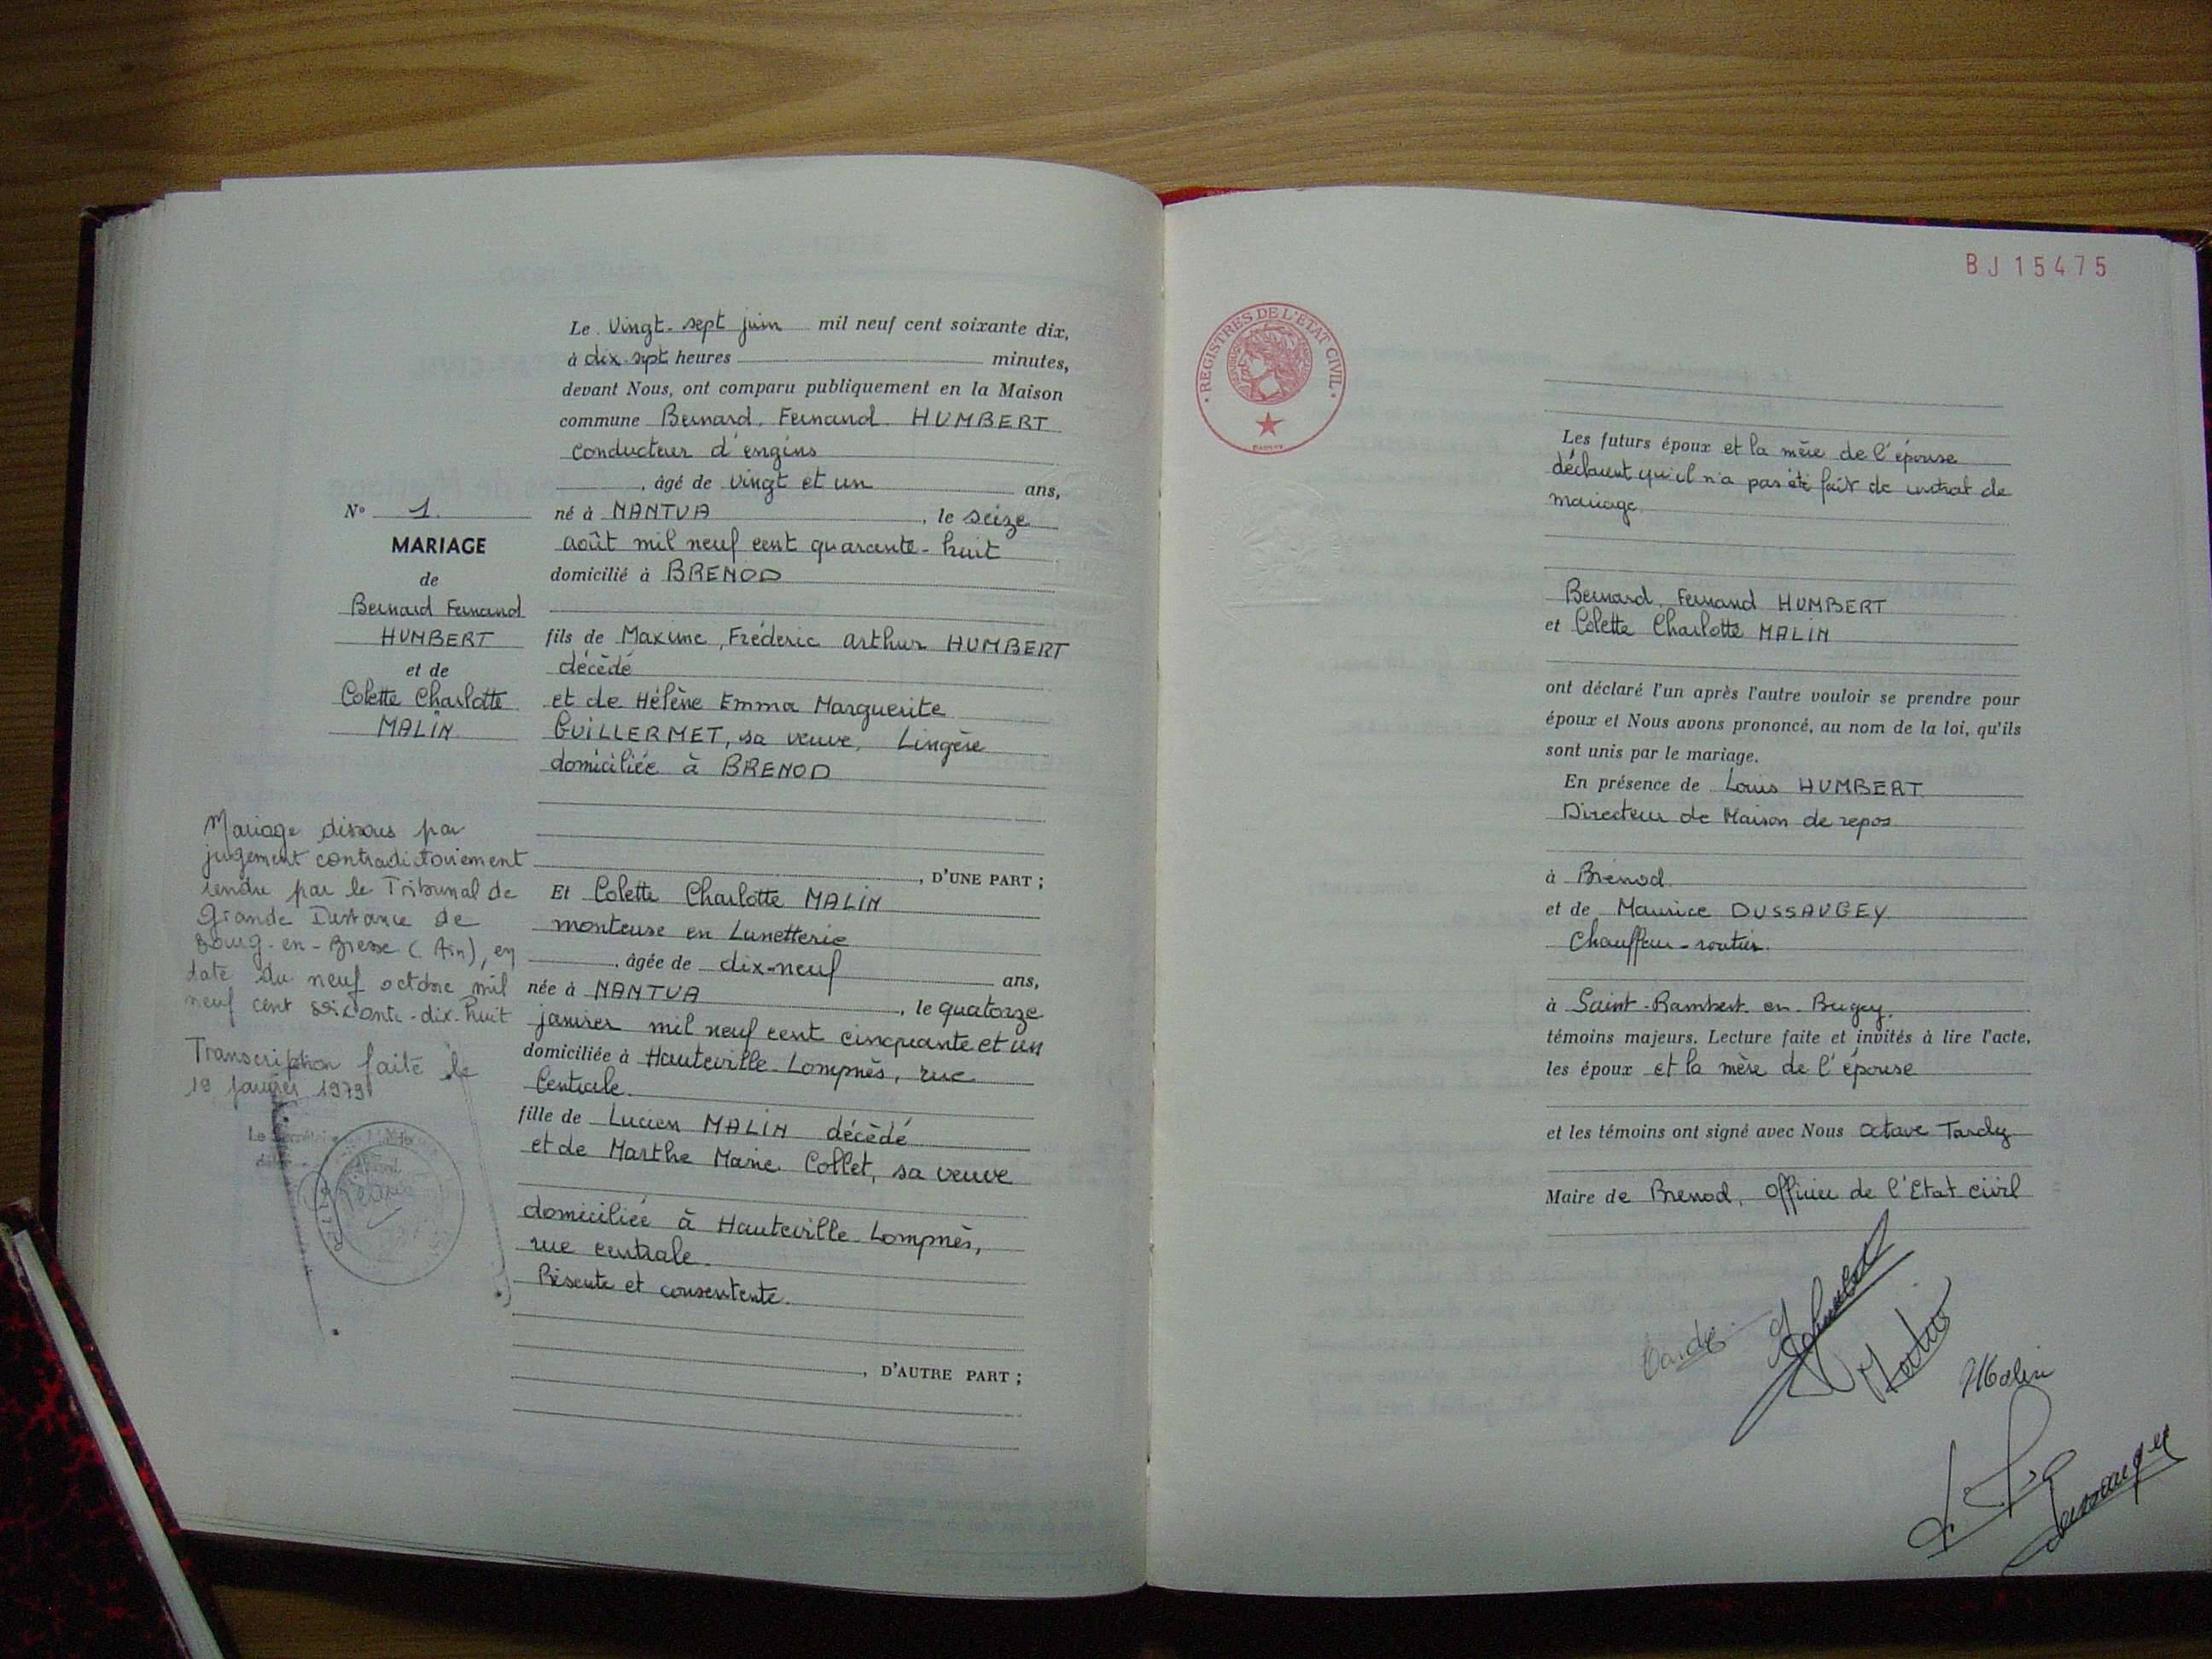 Le vingt-sept juin mil neuf cent soixante dix,
à dix-sept heures minutes,
devant Nous, ont comparu publiquement en la Maison
commune Bernard, Fernand HUMBERT
conducteur d'engins
, âgé de vingt et un ans,
né à NANTUA , le seize
août mil neuf cent quarante-huit
domicilié à BRENOD
fils de Maxime, Fréderic Arthur HUMBERT
décédé
et de Hélène Emma Marguerite
GUILLERMET, sa veuve, Lingère
domiciliée à BRENOD
, D'UNE PART ;
Et Colette Charlotte MALIN
monteuse en Lunetterie
, âgée de dix-neuf ans,
née à NANTUA , le quatorze
janvier mil neuf cent cinquante et un
domiciliée à Hauteville-Lompnès, rue
Centrale
fille de Lucien MALIN décédé
et de Marthe Marie Collet, sa veuve
domiciliée à Hauteville-Lompnès,
rue centrale.
Présente et consentente.
, D'AUTRE PART ;
N° 1.
MARIAGE
de
Bernard Fernand
HUMBERT
et de
Colette Charlotte
MALIN
Mariage dissous par
jugement contradictoirement
rendu par le Tribunal de
Grande Instance de
Bourg-en-Bresse (Ain), en
date du neuf octobre mil
neuf cent soixante-dix-huit
Transcription faite le
19 janvier 1979
BJ 15475
• REGISTRES DE L'ÉTAT CIVIL •
Les futurs époux et la mère de l'épouse
déclarent qu'il n'a pas été fait de contrat de
mariage.
Bernard, Fernand HUMBERT
et Colette Charlotte MALIN
ont déclaré l'un après l'autre vouloir se prendre pour
époux et Nous avons prononcé, au nom de la loi, qu'ils
sont unis par le mariage.
En présence de Louis HUMBERT
Directeur de Maison de repos
à Brénod
et de Maurice DUSSAUGEY
Chauffeur-routier.
à Saint-Rambert-en-Bugey.
témoins majeurs. Lecture faite et invités à lire l'acte,
les époux et la mère de l'épouse
et les témoins ont signé avec Nous Octave Tardy
Maire de Brenod, Officier de l'Etat civil
Tardy
Humbert
Malin
Dussaugey